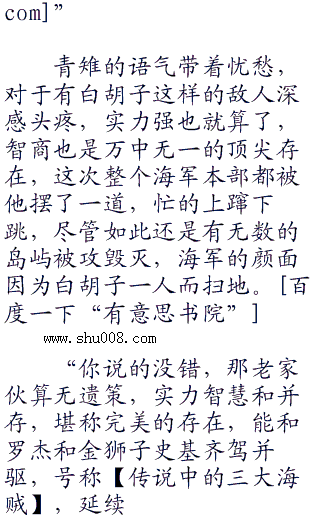 com]”
青雉的语气带着忧愁，
对于有白胡子这样的敌人深
感头疼，实力强也就算了，
智商也是万中无一的顶尖存
在，这次整个海军本部都被
他摆了一道，忙的上蹿下
跳，尽管如此还是有无数的
岛屿被攻毁灭，海军的颜面
因为白胡子一人而扫地。[百
度一下“有意思书院”]
www.shu008.com
“你说的没错，那老家
伙算无遗策，实力智慧和并
存，堪称完美的存在，能和
罗杰和金狮子史基齐驾并
驱，号称【传说中的三大海
贼】，延续